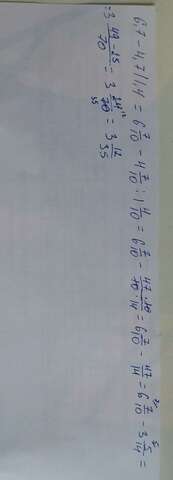 6,7 - 4,7 : 1,4 = 6 7/10 - 4 7/10 : 1 4/10 = 6 7/10 - 47·10/10·14 = 6 7/10 - 47/14 = 6 7/10 - 3 5/14 =
= 3 49-25/70 = 3 24/70 = 3 12/35